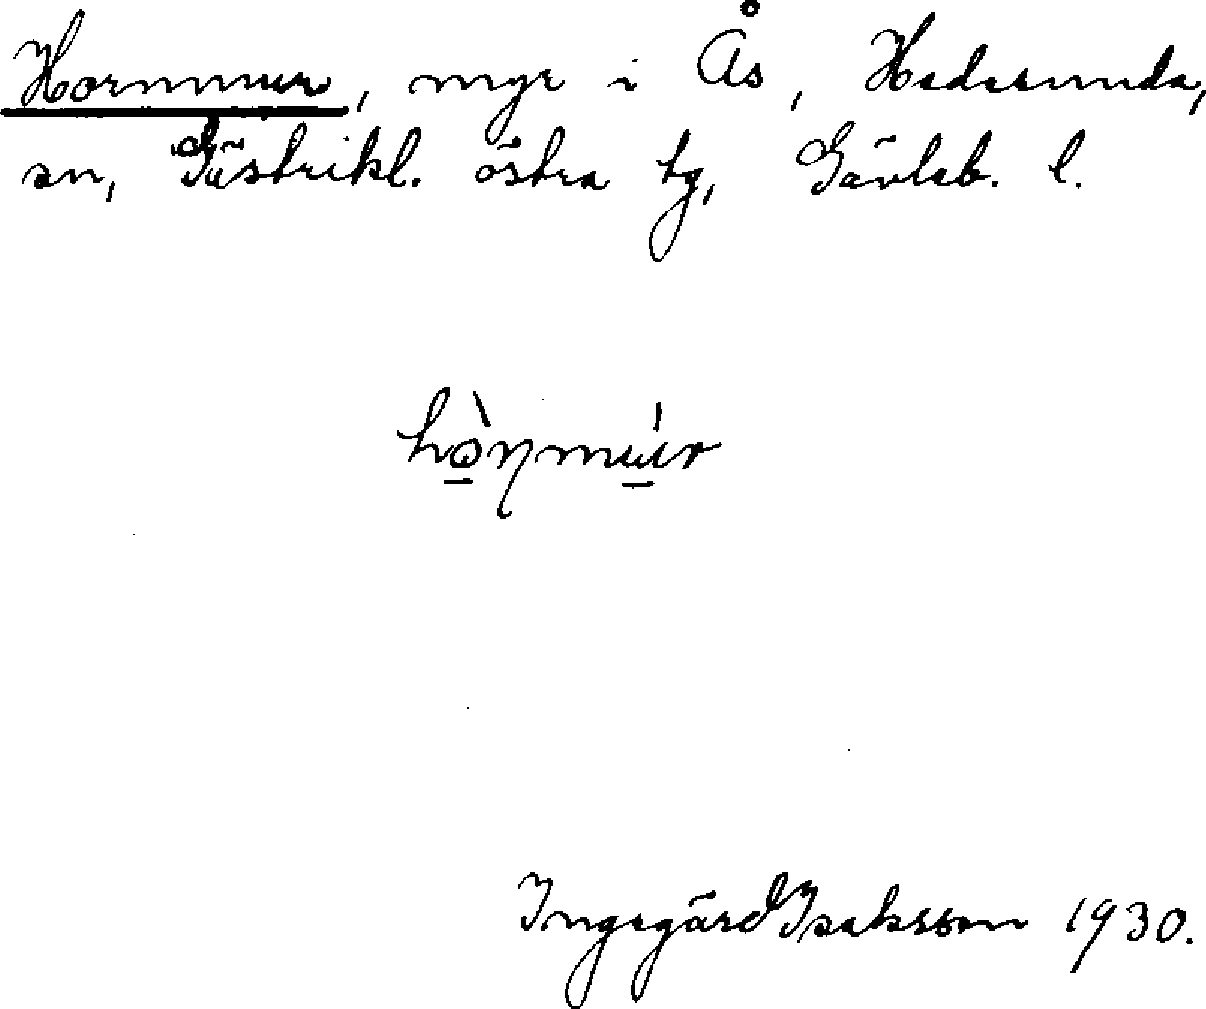 Hornmur, myr i Ås, Hedesunda,
sn, Gästrikl. östra tg, Gävleb. l.
hò̠ɳmúr̠
Ingegärd Isaksson 1930.